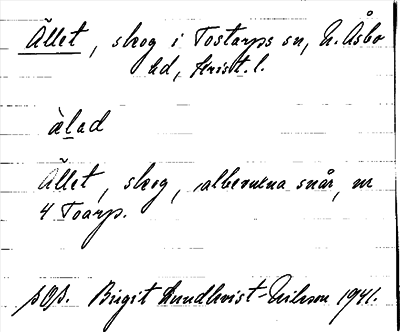 Ället, skog i Tostarps sn, N. Åsbo
hd, Krist. l.
àlad
Ället, skog, albevuxna snår, nr
4 Toarp.
Birgit Lundkvist-Nilsson 1941.